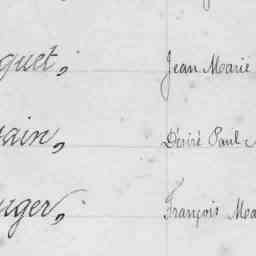 quet, Jean Marie
ain, Désiré Paul
uger, François Ma